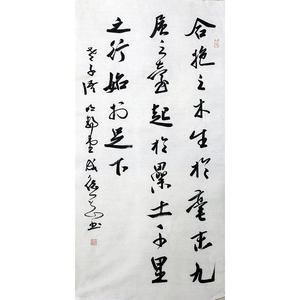 合抱之木生於毫末九
层之臺起於累土千里
之行始於足下
老子语
书